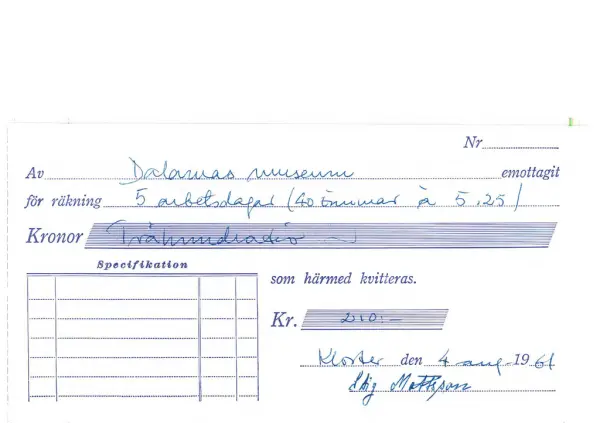 Nr
Av Dalarnas museum emottagit
för räkning 5 arbetsdagar (40 timmar à 5,25)
Kronor Tvåhundratio
Specifikation
som härmed kvitteras.
Kr. 210:-
Kloster den 4 aug 1961
Stig Mattsson